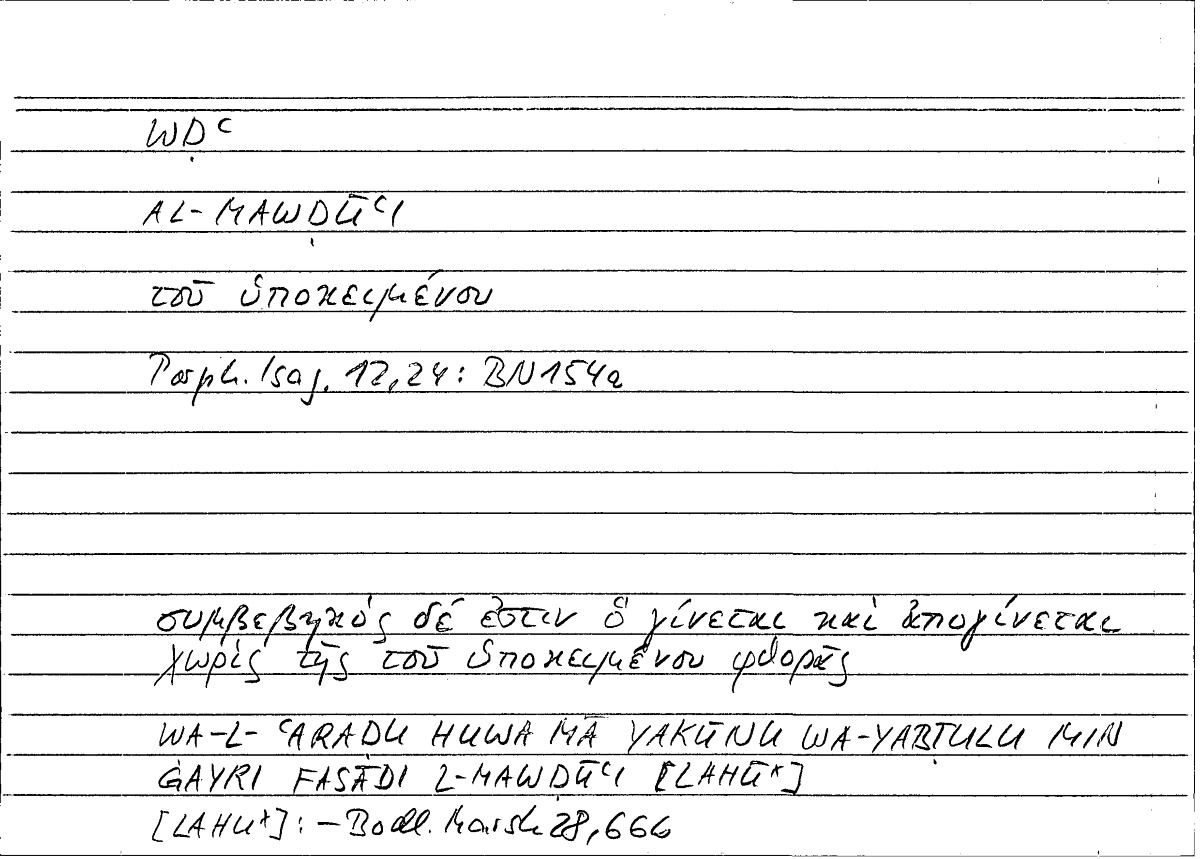 WḌʿ
AL-MAWḌŪʿI
τοῦ ὑποκειμένου
Porph. Isag. 12,24: BN154a
συμβεβηκός δέ ἐστιν ὃ γίνεται καὶ ἀπογίνεται
χωρὶς τῆς τοῦ ὑποκειμένου φθορᾶς
WA-L-ʿARADU HUWA MĀ YAKŪNU WA-YABṬULU MIN
ĠAYRI FASĀDI L-MAWḌŪʿI [LAHŪ*]
[LAHU*]: – Bodl. Marsh 28,66b